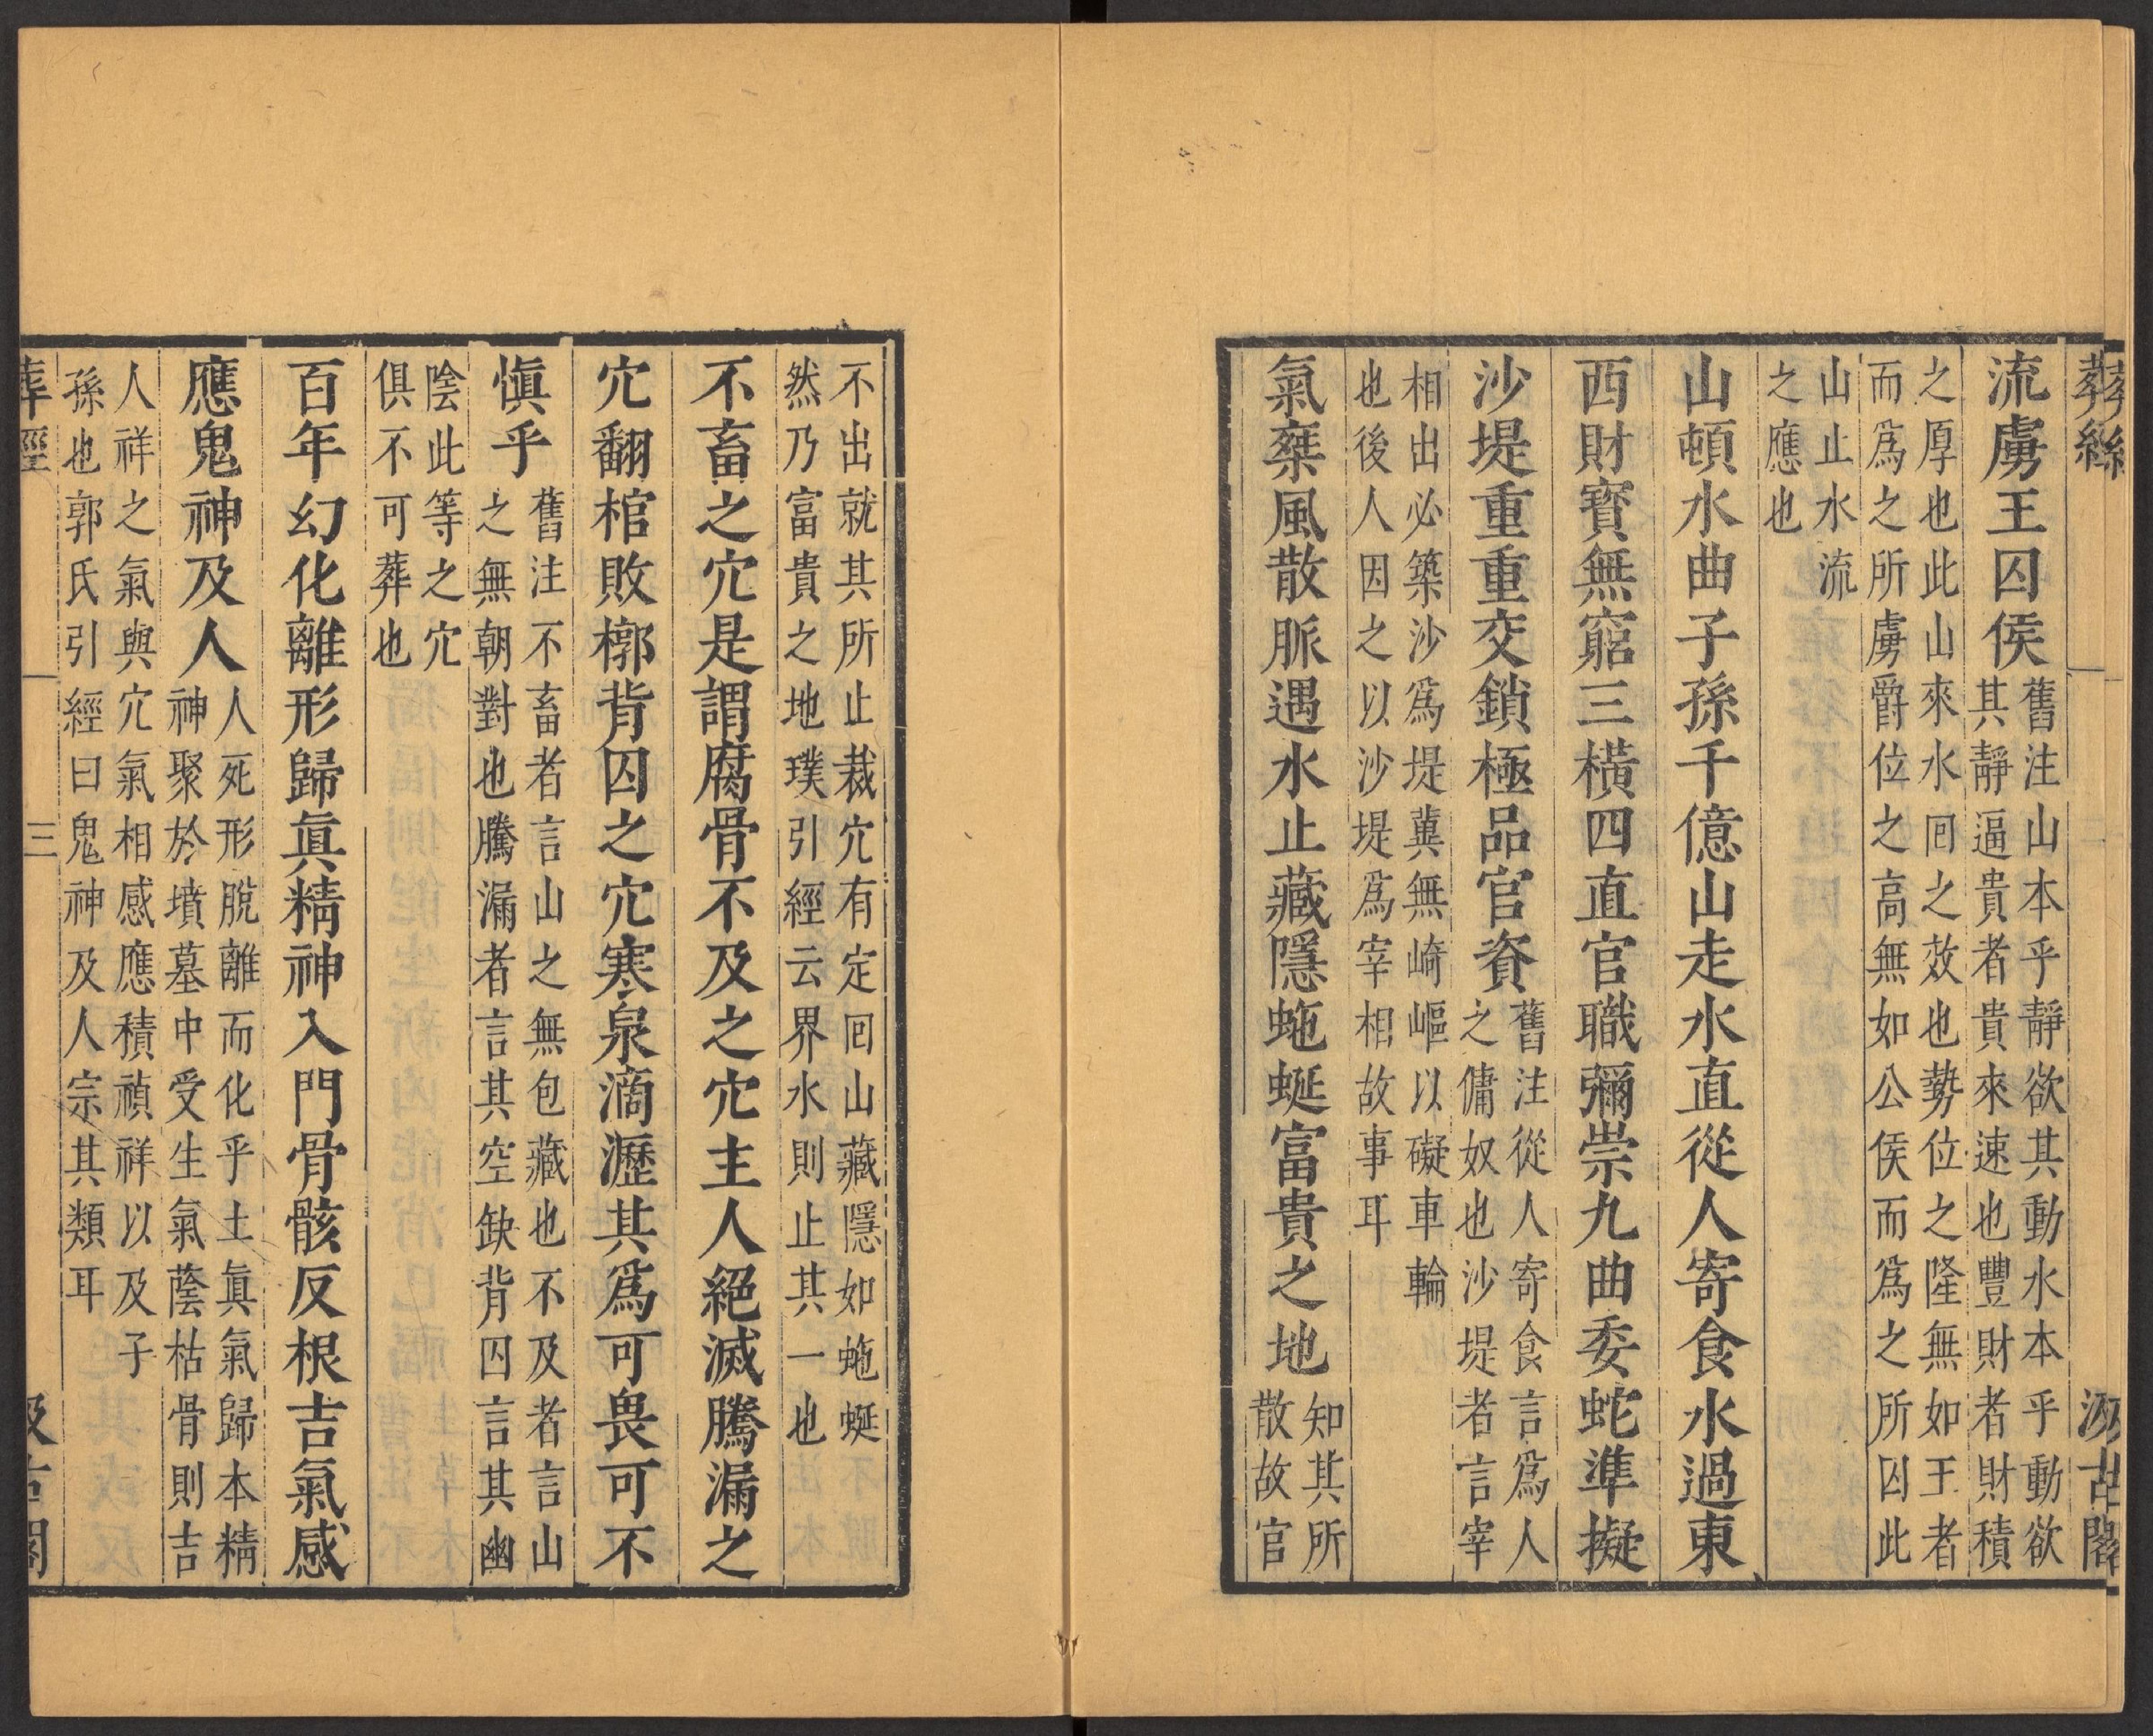 葬經
汲古閣
流虜王囚侯
舊注山本乎靜欲其動水本乎動欲
其靜逼貴者貴來速也豐財者財積
之厚也此山來水回之效也勢位之隆無如王者
而爲之所虜爵位之高無如公侯而爲之所囚此
山止水流
之應也
山頓水曲子孫千億山走水直從人寄食水過東
西財寳無窮三橫四直官職彌崇九曲委蛇準擬
沙堤重重交鎖極品官資
舊注從人寄食言爲人
之傭奴也沙堤者言宰
相出必築沙爲堤冀無崎嶇以礙車輪
也後人因之以沙堤爲宰相故事耳
氣椉風散脈遇水止藏隱虵蜒富貴之地
知其所
散故官
不出就其所止裁穴有定回山藏隱如虵蜒
然乃富貴之地璞引經云界水則止其一也
不畜之穴是謂腐骨不及之穴主人絕滅騰漏之
穴翻棺敗槨背囚之穴寒泉滴瀝其爲可畏可不
愼乎
舊注不畜者言山之無包藏也不及者言山
之無朝對也騰漏者言其空缺背囚言其幽
陰此等之穴
俱不可葬也
百年幻化離形歸眞精神入門骨骸反根吉氣感
應鬼神及人
人死形脫離而化乎土眞氣歸本精
神聚於墳墓中受生氣蔭枯骨則吉
人祥之氣與穴氣相感應積禎祥以及子
孫也郭氏引經曰鬼神及人宗其類耳
葬經
三
汲古閣